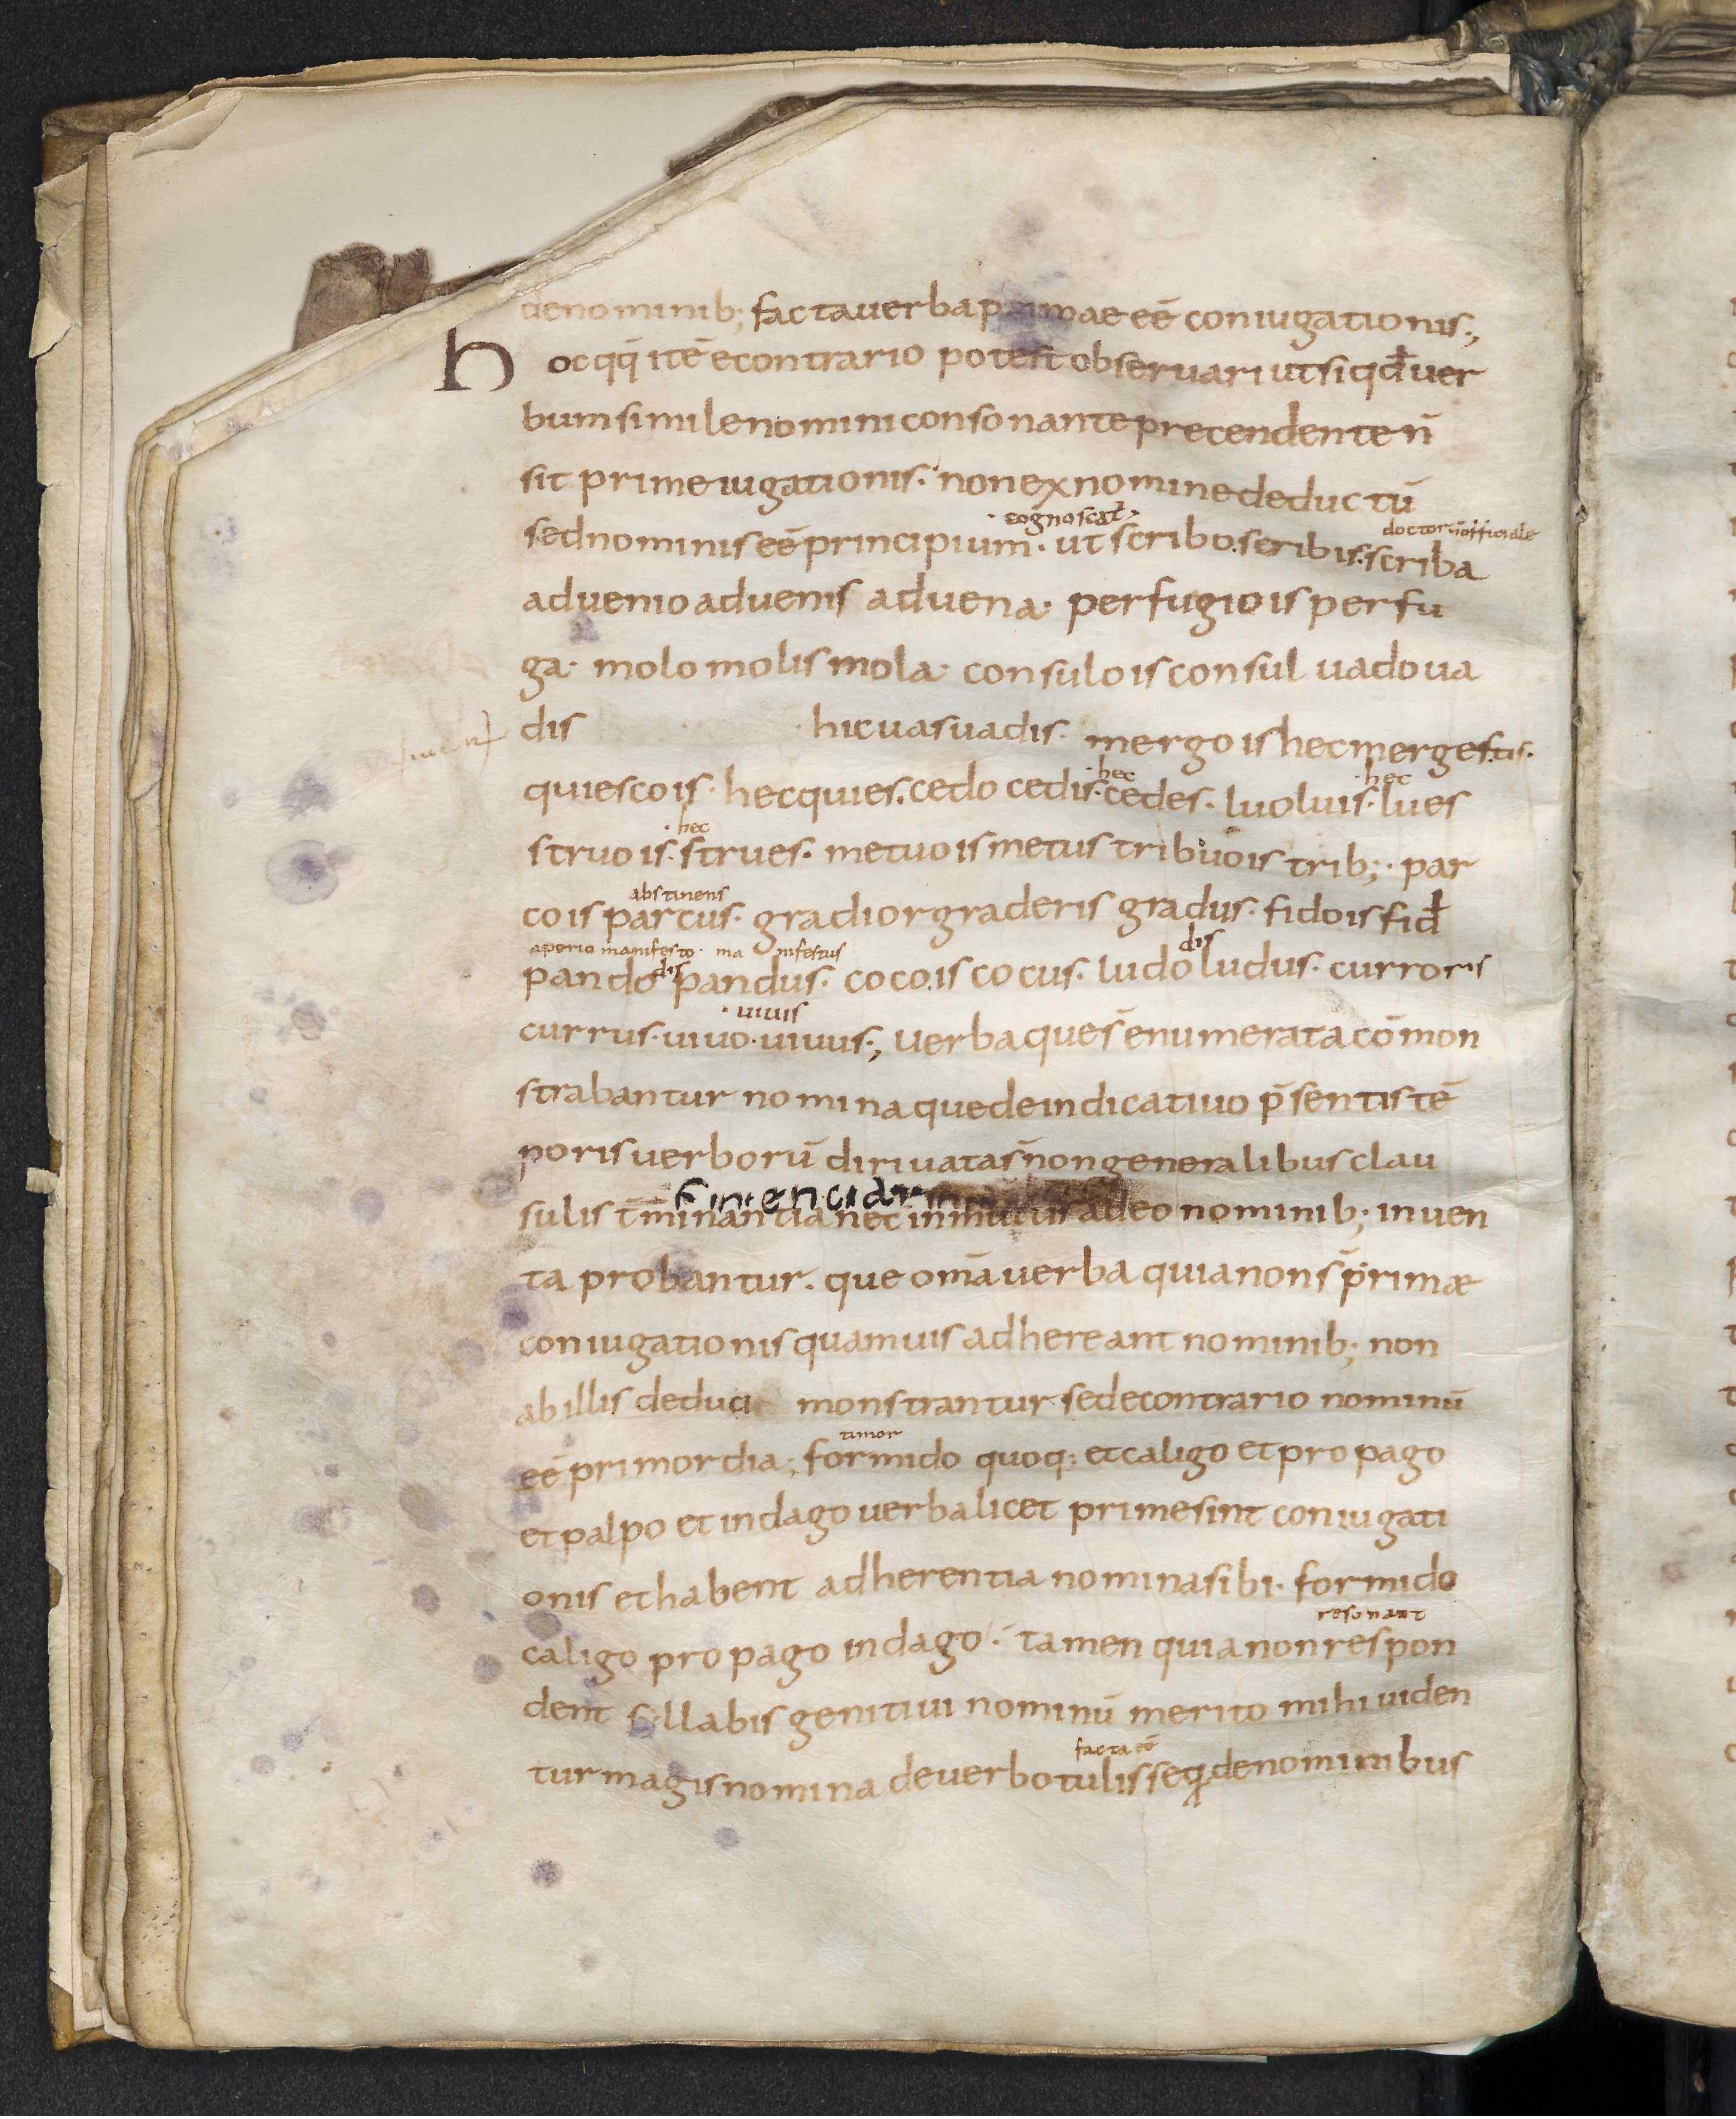 denominib; facta uerba primae eē coniugationis.,
Hoc qq̄ itē econtrario potest obseruari ut si qđ uer
bum simile nomini consonante precendente n̄
sit prime iugationis. non ex nomine deductū
· cognoscat̄ ·
doctor
sed nominis eē principium. ut scribo. scribis. scriba
aduenio aduenis aduena. perfugio is perfu
ga. molo molis mola. consulo is consul uado ua
dis hic uas uadis. mergo is hec merges.tis.
· hec · hec
quiesco is. hec quies. cedo cedis. cedes. luo luis. lues
· hec
struo is. strues. metuo is metus tribuo is trib;. par
abstinens
co is parcus. gradior graderis gradus. fido is fiđ
aperio manifesto · manifestus dis
pando dis pandus. coco.is cocus. ludo ludus. curro ris
· uiuis
currus. uiuo. uiuus., uerba que s̄ enumerata cōmon
strabantur nomina que de indicatiuo p̄sentis tē
poris uerborū diriuata s̄ non generalibus clau
sulis t̄minantia nec in adeo nominib; inuen
ta probantur. que om̄a uerba quia non s̄ primæ
coniugationis quamuis adhereant nominib; non
ab illis deduci monstrantur sed econtrario nominū
timor
eē primordia; formido quoq; et caligo et propago
et palpo et indago uerba licet prime sint coniugati
onis et habent adherentia nomina sibi. formido
resonant
caligo propago indago. tamen quia non respon
dent sillabis genitiui nominū merito mihi uiden
facta eē
tur magis nomina de uerbo tulisse q̄ de nominibus